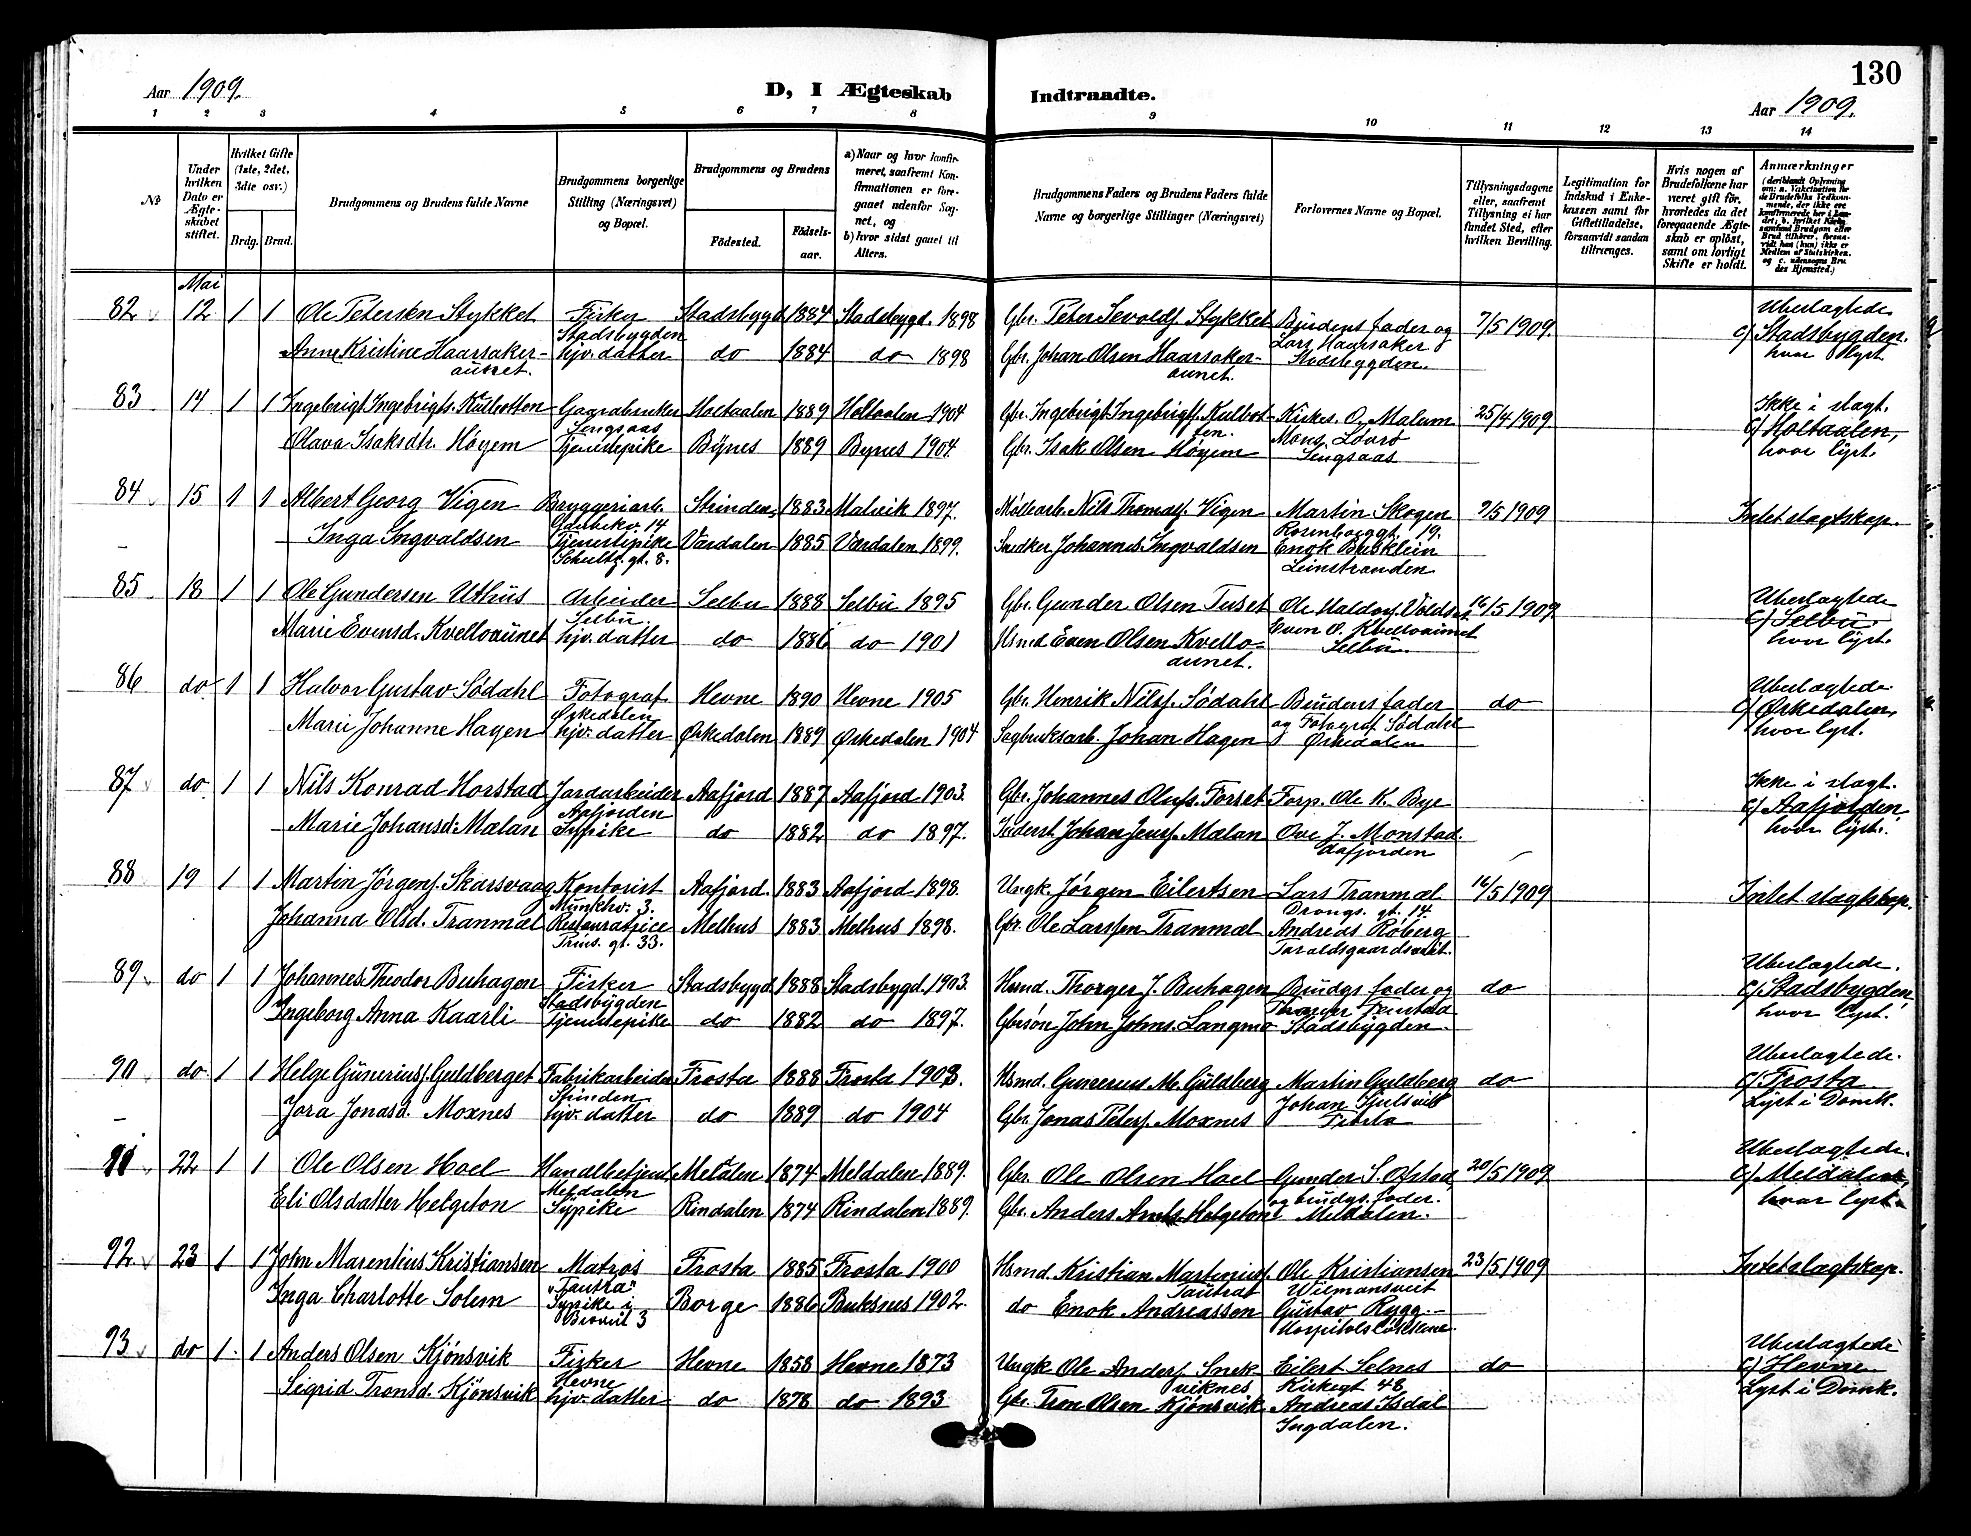 130
Aar 1909.
D, I Ægteskab
Indtraadte.
Aar 1909.
1 2 3 4 5 6 7 8 9 10 11 12 13 14
No
Under hvilken Dato er Ægteskabet stiftet.
Hvilket Gifte (1ste, 2det, 3die osv.)
Brdg. Brud.
Brudgommens og Brudens fulde Navne
Brudgommens borgerlige Stilling (Næringsvei) og Bopæl.
Brudgommens og Brudens
Fødested.
Fødselsaar.
a) Naar og hvor konfirmeret, saafremt Konfirmationen er foregaaet udenfor Sognet, og
b) hvor sidst gaaet til Alters.
Brudgommens Faders og Brudens Faders fulde Navne og borgerlige Stillinger (Næringsvei)
Forlovernes Navne og Bopæl.
Tillysningsdagene eller, saafremt Tillysning ei har fundet Sted, efter hvilken Bevilling.
Legitimation for Indskud i Enkekassen samt for Giftetilladelse, forsaavidt saadan tiltrænges.
Hvis nogen af Brudefolkene har været gift før, hvorledes da det foregaaende Ægteskab er opløst, samt om lovligt Skifte er holdt.
Anmærkninger
Mai
82 12 1 1 Ole Petersen Stykket Fisker Stadsbygd 1884 Stadsbygd. 1898 Gbr. Peter Sevalds. Stykket Brudens fader og 7/5 1909. Ubeslægtede
Stadsbygden Lars Haarsaker c/ Stadsbygden.
Anne Kristine Haarsaker- hjv. datter do 1884 do 1898 Gbr. Johan Olsen Haarsaker- Stadsbygden. hvor lyst.
aunet. aunet.
83 14 1 1 Ingebrigt Ingebrigts. Kulbotten Gaardbruker Holtaalen 1889 Holtaalen 1904 Gbr. Ingebrigt Ingebrigts. Kulbot- Kirkes. O. Malum 25/4 1909 Ikke i slagt.
Sengsaas ten. Mons. Løvrø c/ Holtaalen,
Olava Isaksdtr. Høyem Tjenestepike Bynes 1889 Bynes 1904 Gbr. Isak Olsen Høyem Sengsaas hvor lyst.
84 15 1 1 Albert Georg Vigen Bryggeriarb. Strinden 1883 Malvik 1897. Møllearb. Nils Thomas. Vigen Martin Skogen 9/5 1909 Intet slagtskap.
14 Rosenborggt. 19.
Inga Ingvaldsen Tjenestepike Værdalen 1885 Værdalen 1899. Snedker Johannes Ingvaldsen Enok Busklein
Schultz. gt. 8. Leinstranden
85 18 1 1 Ole Gundersen Uthus Arbeider Selbu 1888 Selbu 1895 Gbr. Gunder Olsen Tuset Ole Haldos. Voldset 16/5 1909 Ubeslagtede
Selbu Even O. Kvelloaunet c/ Selbu
Marie Evensd. Kvelloaunet hjv. datter do 1881 do 1901 Hsmd Even Olsen Kvello- Selbu hvor lyst.
aunet.
86 do 1 1 Halvor Gustav Sødahl Fotograf Hevne 1890 Hevne 1905 Gbr. Henrik Nils. Sødahl Brudens fader do Ubeslægtede
Ørkedalen og Fotograf Sødahl c/ Ørkedalen,
Marie Johanne Hagen hjv. datter Ørkedalen 1889 Ørkedalen 1904 Sagbruksarb. Johan Hagen Ørkedalen hvor lyst.
87 do 1 1 Nils Konrad Horstad Jordarbeider Aafjord 1887 Aafjord 1903. Gbr. Johannes Olufs. Forset Forp. Ole K. Bye Ikke i slagt.
Aafjorden c/ Aafjorden,
Marie Johansd. Mælan Sypike do 1882 do 1897. Johan Jens. Mælan Ove J. Monstad. hvor lyst.
Aafjorden
88 19 1 1 Martin Jørgens. Skarsvaag Kontorist Aafjord. 1883 Aafjord 1898. Ungk. Jørgen Eilertsen Lars Tranmæl 16/5 1909 Intet slagtskap.
Munkhv. 3. Drongs. gt. 14.
Johanna Olsd. Tranmæl Melhus 1883 Melhus 1898. Gbr. Ole Larssen Tranmæl Andreas Røberg
Prins. gt. 33. Taraldsgaardsveit.
89 do 1 1 Johannes Theodor Buhagen Fisker Stadsbygd 1888 Stadsbygd 1903. Hsmd. Thorger J. Buhagen Brudgs fader og do Ubeslægtede.
Stadsbygden c/ Stadsbygden,
Ingeborg Anna Kaarli Tjenestepike do 1882 do 1897. Gbrsøn John Johns. Langmo Stadsbygden. hvor lyst.
90 do 1 1 Helge Gunerius. Guldberget Fabrikarbeider Frosta 1888 Frosta 1903. Hsmd. Gunerius M. Guldberg Martin Guldberg do Ubeslagtede.
Strinden Johan c/ Frosta
Jora Jonasd. Moxnes hjv. datter do 1889 do 1904 Gbr. Jonas Peters. Moxnes Frosta Lyst i Domk.
91 22 1 1 Ole Olsen Hoel Handelbetjent Meldalen 1874 Meldalen 1889. Gbr. Ole Olsen Hoel Gunder S. 20/5 1909 Ubeslægtede.
Meldalen og brudgs. fader. c/ Meldalen,
Eli Olsdatter Helgeton Sypike Rindalen 1874 Rindalen 1889. Gbr. Anders Helgeton Meldalen. hvor lyst.
92 23 1 1 John Marentius Kristiansen Matros Frosta 1885 Frosta 1900 Hsmd. Kristian Ole Kristiansen 23/5 1909 Intet slagtskap.
"Tautra" Tautra Wiemansveit
Inga Charlotte Solem Sypike i Borge 1886 Buksnes 1902. do Enok Andreassen Gustav Rygg.
3
93 do 1 1 Anders Olsen Kjønsvik Fisker Hevne 1858 Hevne 1873 Ungk. Ole Anders. Snek- Eilert Selnes do Ubeslægtede
Hevne viknes Kirkegt 48 c/ Hevne
Sigrid Tronsd. Kjønsvik hjv. datter do 1878 do 1893 Gbr. Tron Olsen Kjønsvik Andreas Isdal Lyst i Domk.
Ingdalen.